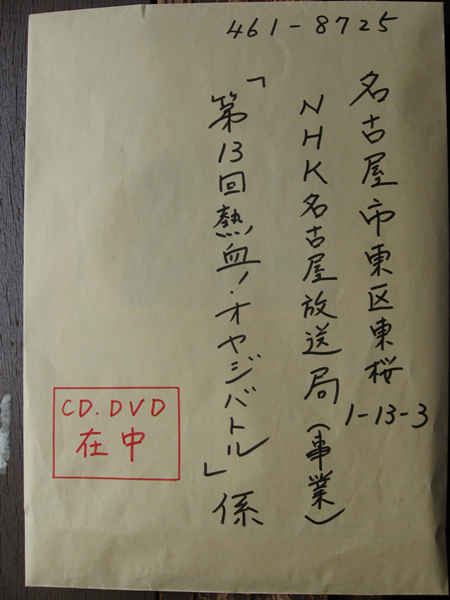 461-8725
名古屋市東区東桜
1-13-3
NHK名古屋放送局(事業)
「第13回熱血!オヤジバトル」係
CD.DVD
在中